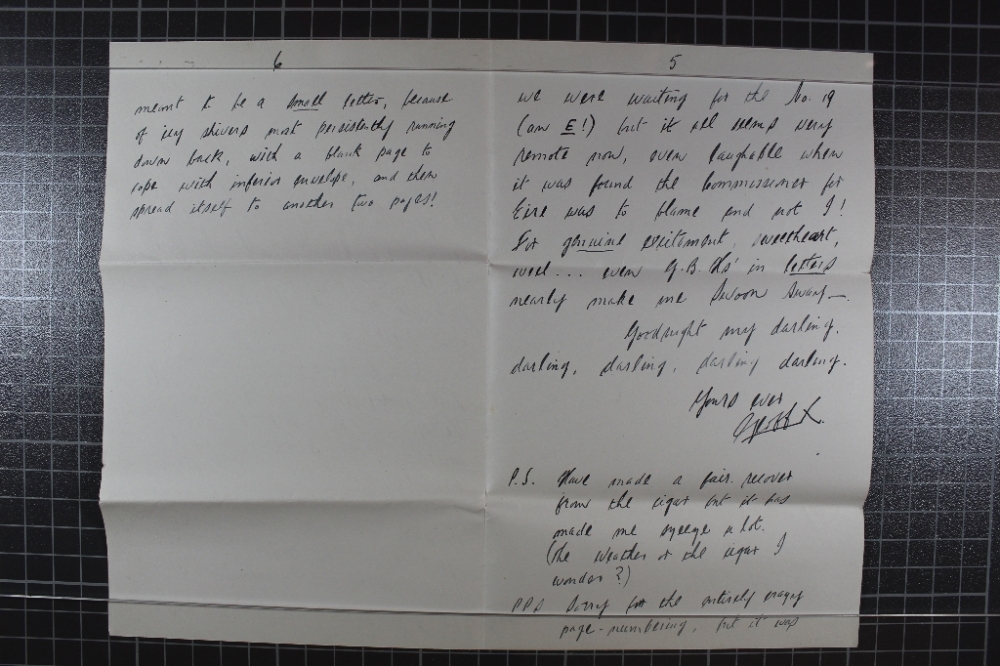 5
we were waiting for the No. 19
(am E!) but it all seems very
remote now, even laughable when
it was found the Commissioner for
Eire was to blame and not I!
For genuine excitement, sweetheart,
well... even G.B. in letters
nearly make me swoon away—.
Goodnight my darling,
darling, darling, darling darling.
Yours ever
Geoff
P.S. Have made a fair recover
from the cigar but it has
made me a lot.
(The weather or the cigar I
wonder?)
PPS Sorry for the entirely crazy
page-numbering, but it was
6
meant to be a small letter, because
of icy shivers most persistently running
down back, with a blank page to
cope with inferior envelope, and then
spread itself to another two pages!